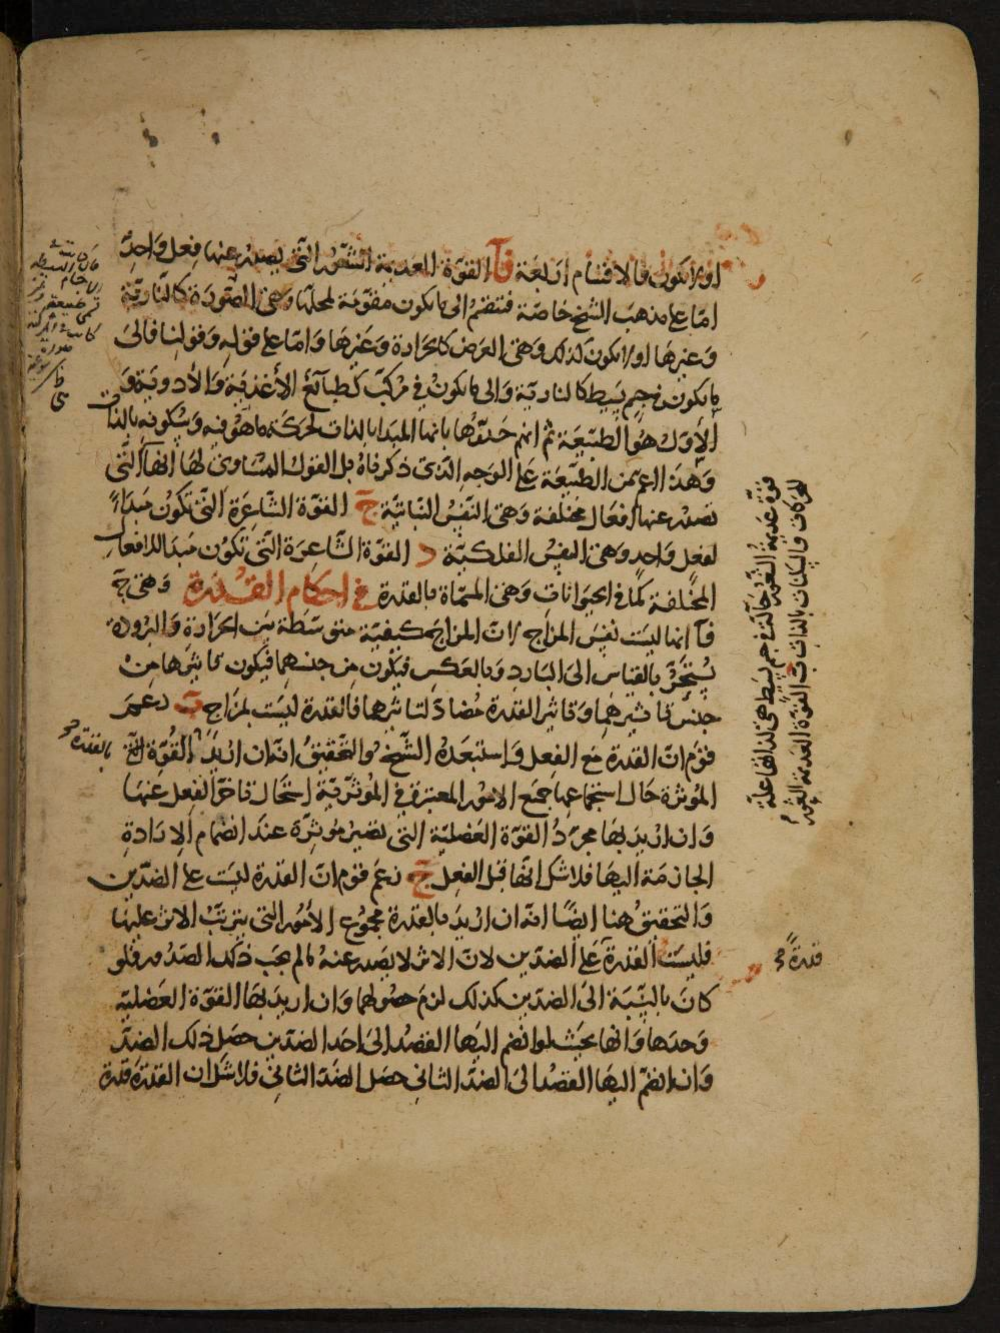 اولا يكون فالاقسام اربعة فآ القوة العديمة الشعور التى يصدر عنها فعل واحد
اما على مذهب الشيخ خاصة فتنقسم الى ما يكون مقومة لمحلها وهى الصورة كالنارية
وغيرها اولا يكون كذلك وهى العرض كالحرارة وغيرها واما على قوله وقولنا فالى
ما يكون فى جسم بسيط كالنارية والى ما يكون فى مركب كطبائع الأغذية والأدوية و
الأول هو الطبيعة ثم انهم حدوها بانها المبدا بالذات لحركة ما هو فيه وسكونه بالذات
وهذا اعم من الطبيعة على الوجه الذى ذكرناه بل القول المساوى لها انها التى
تصدر عنها افعال مختلفة وهى النفس النباتية ج القوة الشاعرة التى تكون مبداءً
لفعل واحد وهى النفس الفلكية د القوة الشاعرة التى تكون مبدا للافعال
المختلفة كما فى الحيوانات وهى المسماة بالقدرة فى احكام القدرة وهى ج
فآ انها ليست نفس المزاج لان المزاج كيفية متوسطة بين الحرارة والبرودة
يستحر بالقياس الى البارد وبالعكس فيكون من جنسهما فيكون تاثيرها من
جنس تاثيرهما وتاثير القدرة مضاد لتاثيرهما فالقدرة ليست بمزاج ب زعم
قوم ان القدرة مع الفعل واستبعده الشيخ والتحقيق انه ان اريد القوة
المؤثرة حال استجماعها جميع الامور المعتبرة فى المؤثرية استحال تاخر الفعل عنها
وان اريد بها مجرد القوة العضلية التى تصير مؤثرة عند انضمام الارادة
الجازمة اليها فلا شك انها قبل الفعل ج زعم قوم ان القدرة ليست على الضدين
والتحقيق هنا ايضًا انه ان اريد بالقدرة مجموع الأمور التى يترتب الاثر عليها
فليست القدرة على الضدين لان الاثر لا يصدر عنه ما لم يجب ذلك الصدور فلو
كان بالنسبة الى الضدين كذلك لزم حصولهما وان اريد بها القوة العضلية
وحدها وانها بحيث لو انضم اليها القصد الى احد الضدين حصل ذلك الضد
وان انضم اليها القصد الى الضد الثانى حصل الضد الثانى فلا شك ان القدرة قدرة
بالقدرة
قدرةً
قوة عديمة الشعور حالة فى جسم بسيط هى لذاتها علة
للحركات والسكنات بالذات ب القوة العديمة الشعور